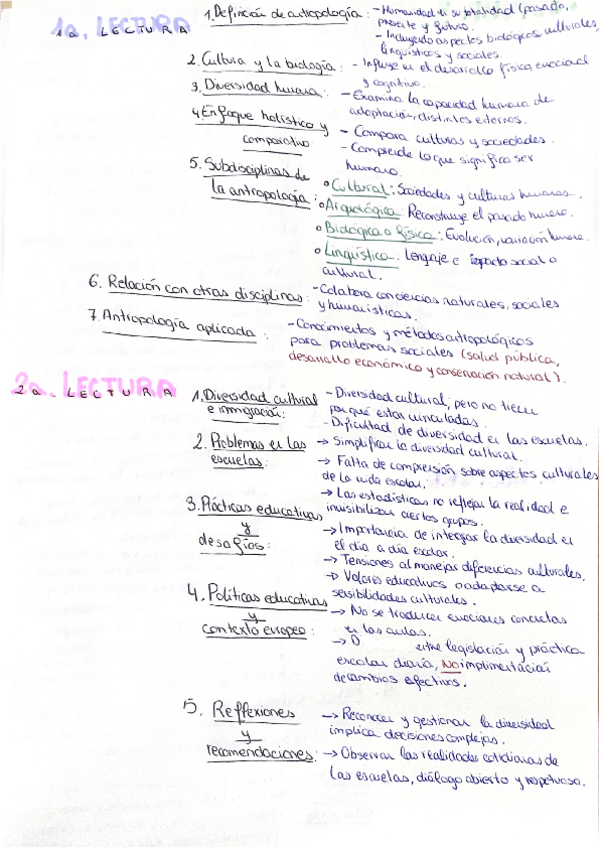 1a. LECTURA
1. Definición de antropología: - Humanidad en su totalidad (pasado,
presente y futuro.
- Incluyendo aspectos biológicos culturales,
lingüísticos y sociales.
2. Cultura y la biología: - Influye en el desarrollo físico, emocional
y cognitivo.
3. Diversidad humana: - Examina la capacidad humana de
adaptación, distintos externos.
4. Enfoque holístico y
comparativo
- Compara culturas y sociedades.
- Comprende lo que significa ser
humano.
5. Subdisciplinas de
la antropología:
Cultural: Sociedades y culturas humanas.
Arqueológica Reconstruye el pasado humano.
Biológica o física: Evolución, variación humana.
Lingüística: Lenguaje e impacto social o
cultural.
6. Relación con otras disciplinas: - Colabora con ciencias naturales, sociales
y humanísticas.
7. Antropología aplicada: - Conocimientos y métodos antropológicos
para problemas sociales (salud pública,
desarrollo económico y conservación natural).
2a. LECTURA
1. Diversidad cultural
e inmigración:
- Diversidad cultural, pero no tienen
porqué estar vinculadas.
- Dificultad de diversidad en las escuelas.
2. Problemas en las
escuelas:
→ Simplifican la diversidad cultural.
→ Falta de comprensión sobre aspectos culturales
de la vida escolar.
→ Las estadísticas no reflejan la realidad e
invisibilizan ciertos grupos.
3. Prácticas educativas
y
desafíos:
→ Importancia de integrar la diversidad en
el día a día escolar.
→ Tensiones al manejar diferencias culturales.
→ Valores educativos o adaptarse a
sensibilidades culturales.
4. Políticas educativas
y
contexto europeo:
→ No se traducen en acciones concretas
en las aulas.
→ D entre legislación y práctica
escolar diaria, NO implimentación
de cambios efectivos.
5. Reflexiones
y
recomendaciones:
→ Reconocer y gestionar la diversidad
implica decisiones complejas.
→ Observar las realidades cotidianas de
las escuelas, diálogo abierto y respetuoso.